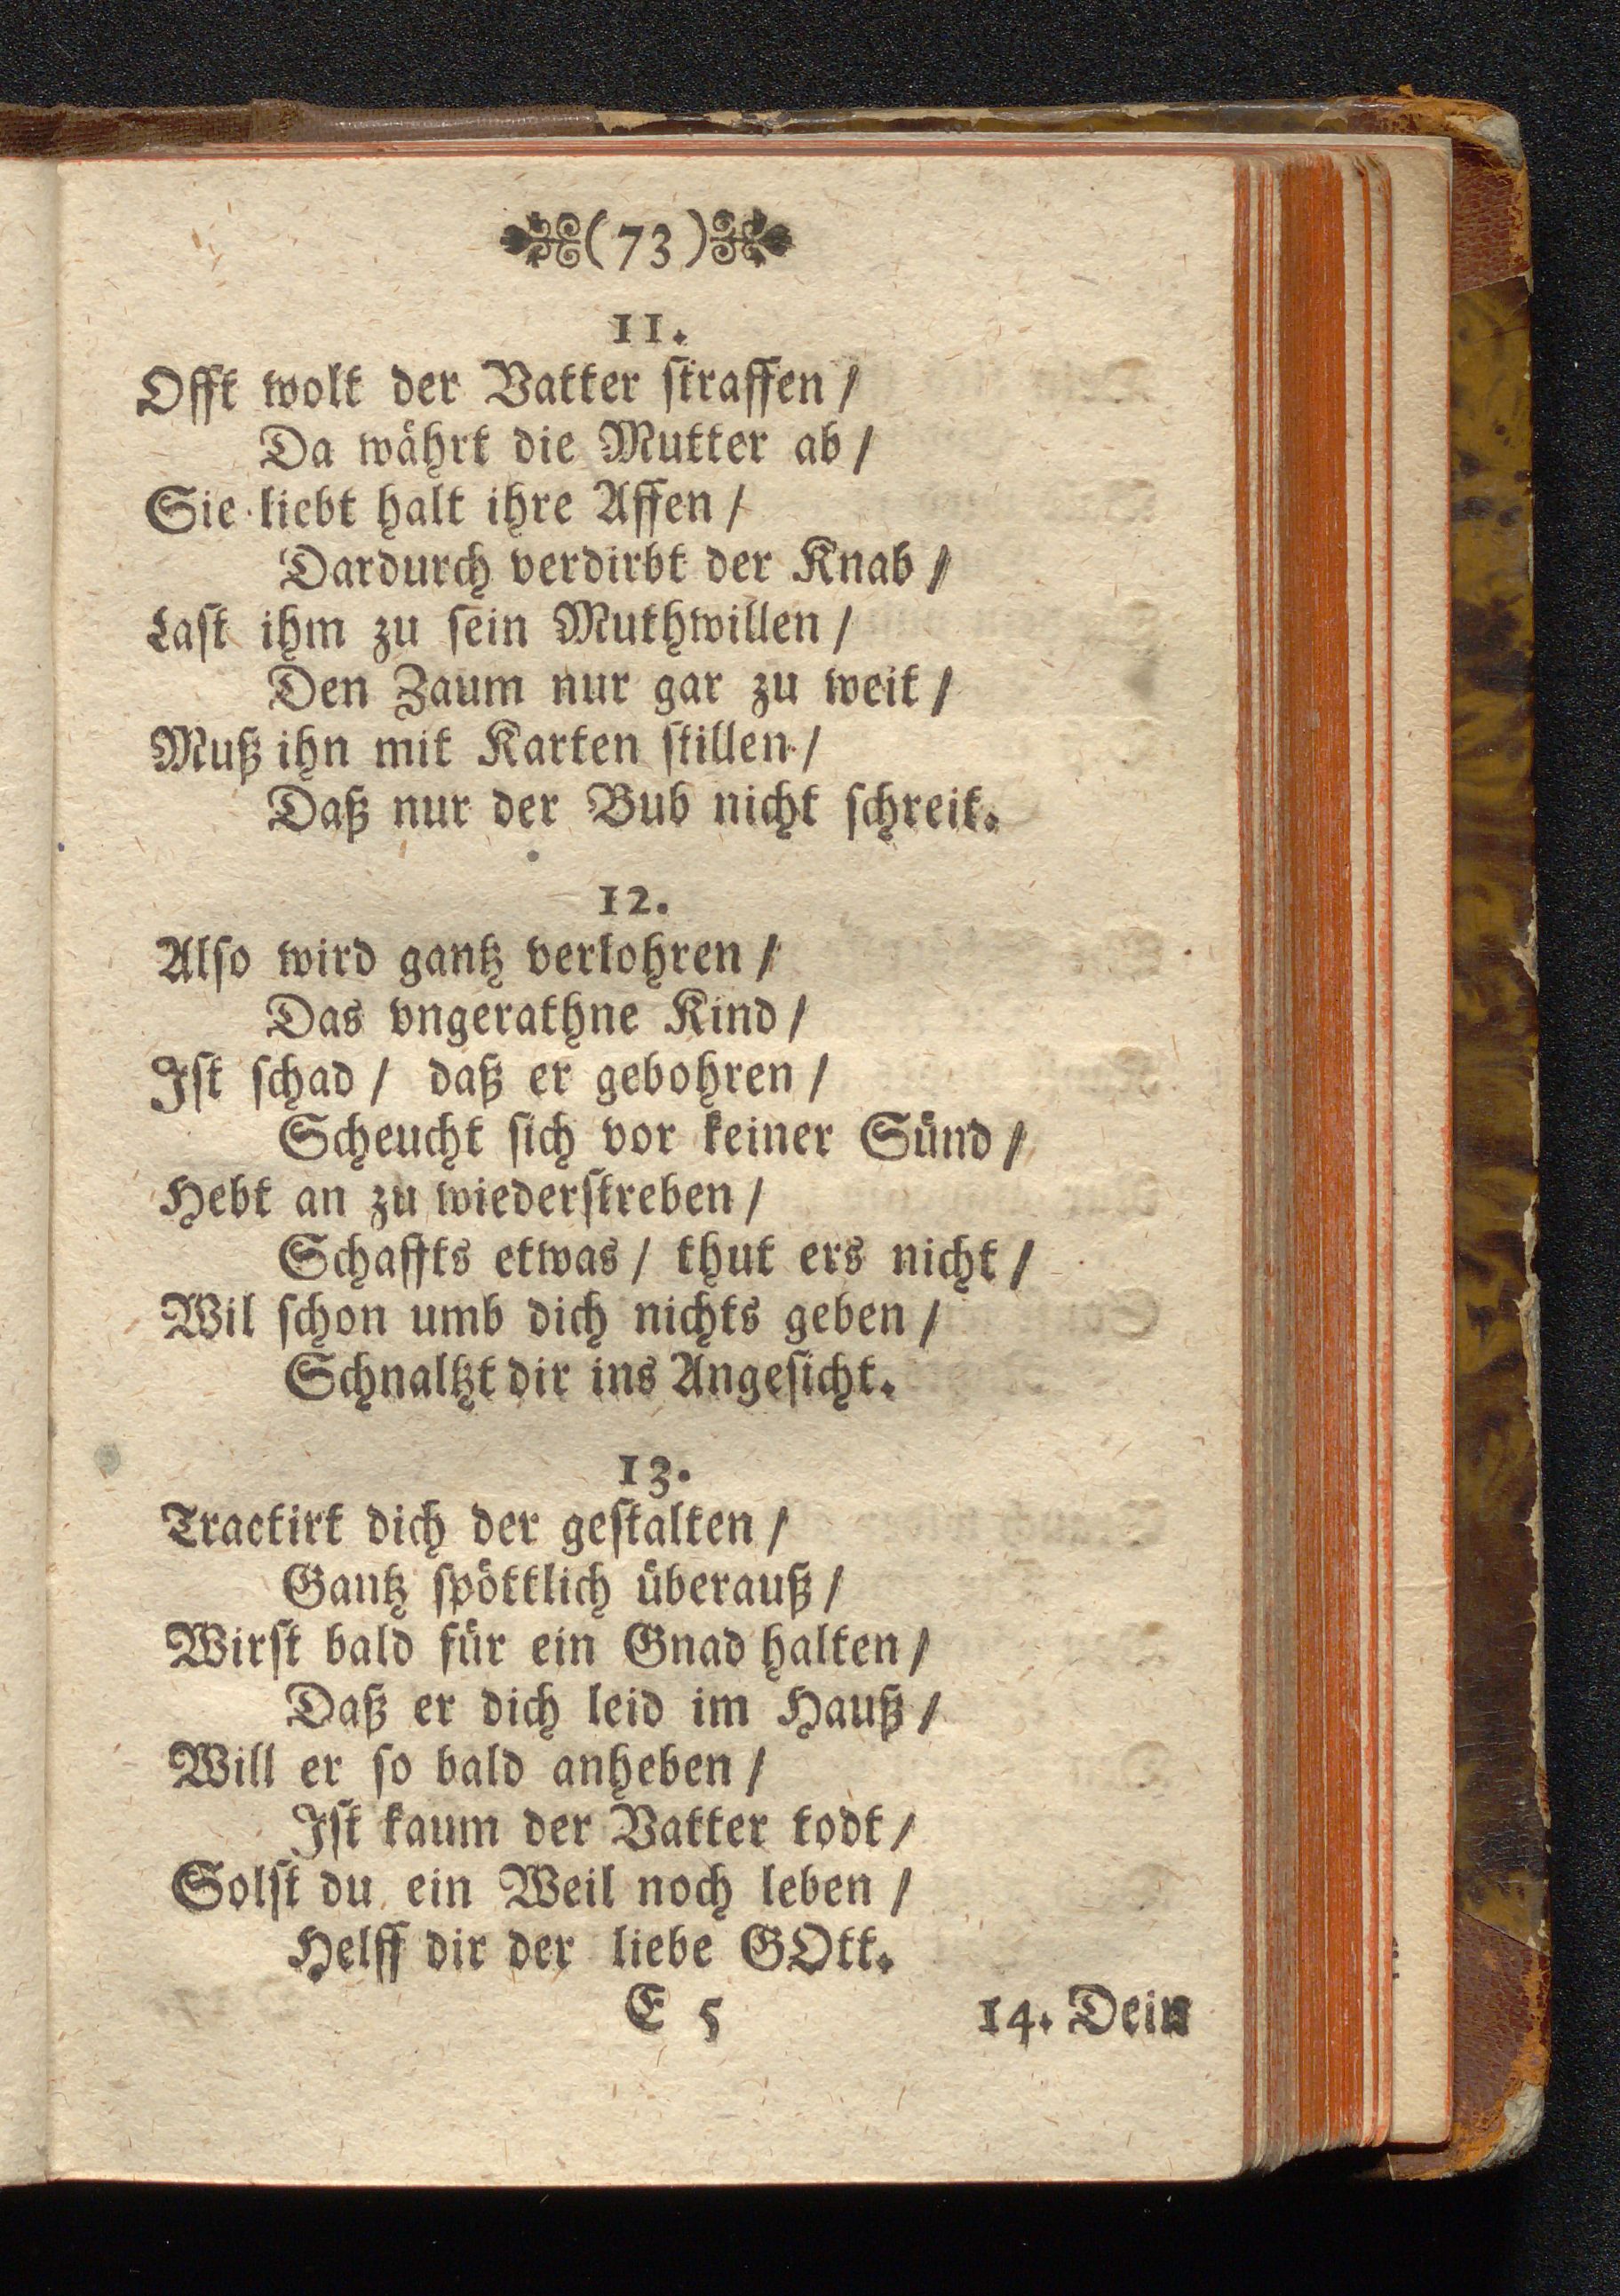 (73)
11.
Offt wolt der Vatter ſtraffen /
Da währt die Mutter ab /
Sie liebt halt ihre Affen /
Dardurch verdirbt der Knab /
Laſt ihm zu ſein Muthwillen /
Den Zaum nur gar zu weit /
Muß ihn mit Karten ſtillen /
Daß nur der Bub nicht ſchreit.
12.
Alſo wird gantz verlohren /
Das vngerathne Kind /
Iſt ſchad / daß er gebohren /
Scheucht ſich vor keiner Sünd /
Hebt an zu wiederſtreben /
Schaffts etwas / thut ers nicht /
Wil ſchon umb dich nichts geben /
Schnaltzt dir ins Angeſicht.
13.
Tractirt dich der geſtalten /
Gantz ſpöttlich überauß /
Wirſt bald für ein Gnad halten /
Daß er dich leid im Hauß /
Will er ſo bald anheben /
Iſt kaum der Vatter todt /
Solſt du ein Weil noch leben /
Helff dir der liebe GOtt.
E 5 14. Dein